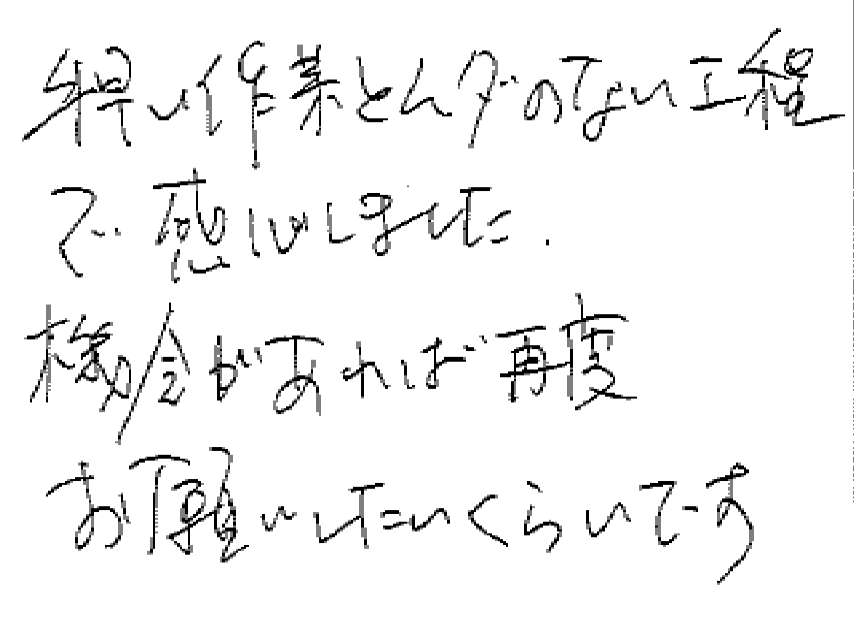 早い作業とムダのない工程
で感心しました.
機会があれば再度
お願いしたいくらいです